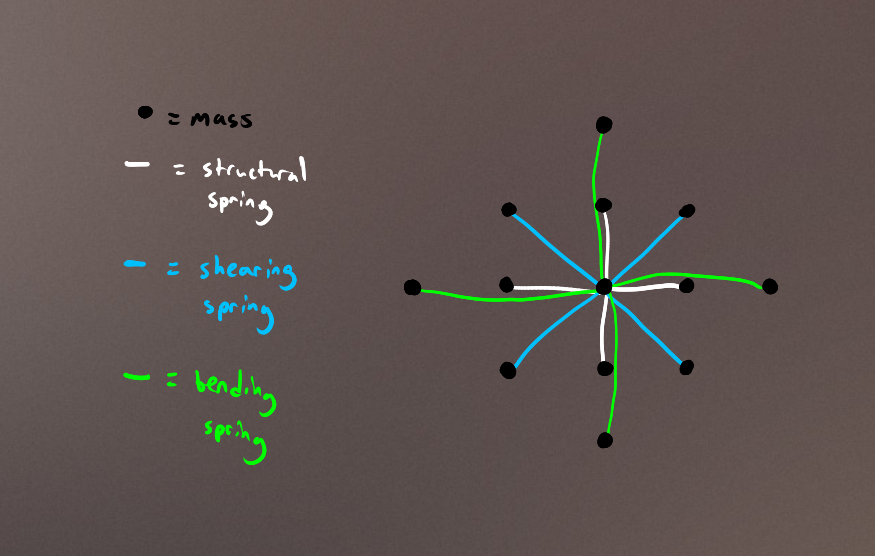 = mass
= structural
spring
= shearing
spring
= bending
spring